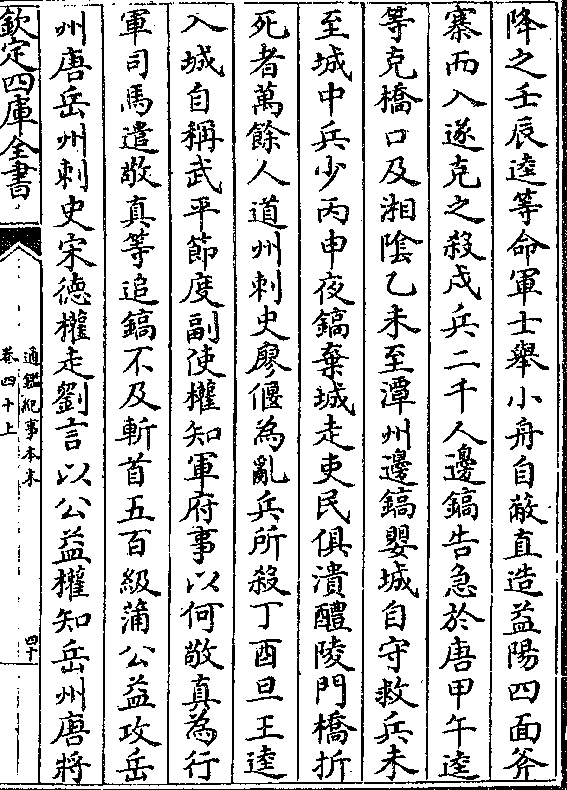 降之壬辰逵等命軍士舉小舟自蔽直造益陽四面斧
寨而入遂克之殺戍兵二千人邊鎬告急於唐甲午逵
等克橋口及湘隂乙未至潭州邊鎬嬰城自守救兵未
至城中兵少丙申夜鎬棄城走吏民俱潰醴陵門橋折
死者萬餘人道州刺史廖偃為亂兵所殺丁酉旦王逵
入城自稱武平節度副使權知軍府事以何敬真為行
軍司馬遣敬真等追鎬不及斬首五百級蒲公益攻岳
州唐岳州刺史宋德權走劉言以公益權知岳州唐將
欽定四庫全書
通鑑紀事本末
卷四十上
四十